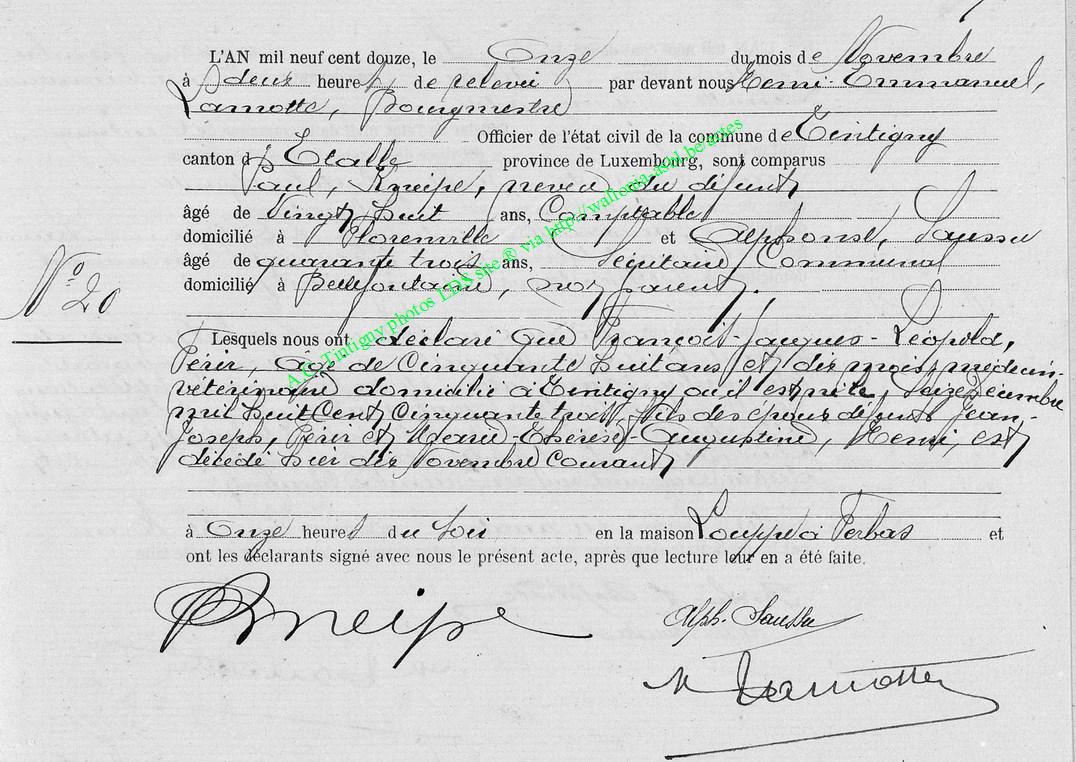 L'AN mil neuf cent douze, le Onze du mois de Novembre
à deux heures de relevée par devant nous Henri-Emmanuel,
Lamotte, Bourgmestre
Officier de l'état civil de la commune de Tintigny
canton d' Etalle province de Luxembourg, sont comparus
Paul, Kneipe, neveu du défunt
âgé de Vingt huit ans, Comptable
domicilié à Florenville et Alphonse, Saussu
âgé de quarante trois ans, Secrétaire Communal
domicilié à Bellefontaine, non parent.
N° 20
Lesquels nous ont déclaré que François-Jacques-Léopold,
Périn, âgé de Cinquante huit ans et dix mois, médecin-
vétérinaire domicilié à Tintigny où il est né le Seize Décembre
mil huit Cent Cinquante trois, fils des époux défunts Jean-
Joseph, Périn et Marie-Thérèse-Augustine, Henri, est
décédé hier dix Novembre Courant
à Onze heures du soir en la maison Louppe à Ferbas et
ont les déclarants signé avec nous le présent acte, après que lecture leur en a été faite.
Kneipe
Alph. Saussu
Lamotte
A.C. Tintigny photos LDS site ® via http://wallonia-asbl.be/actes